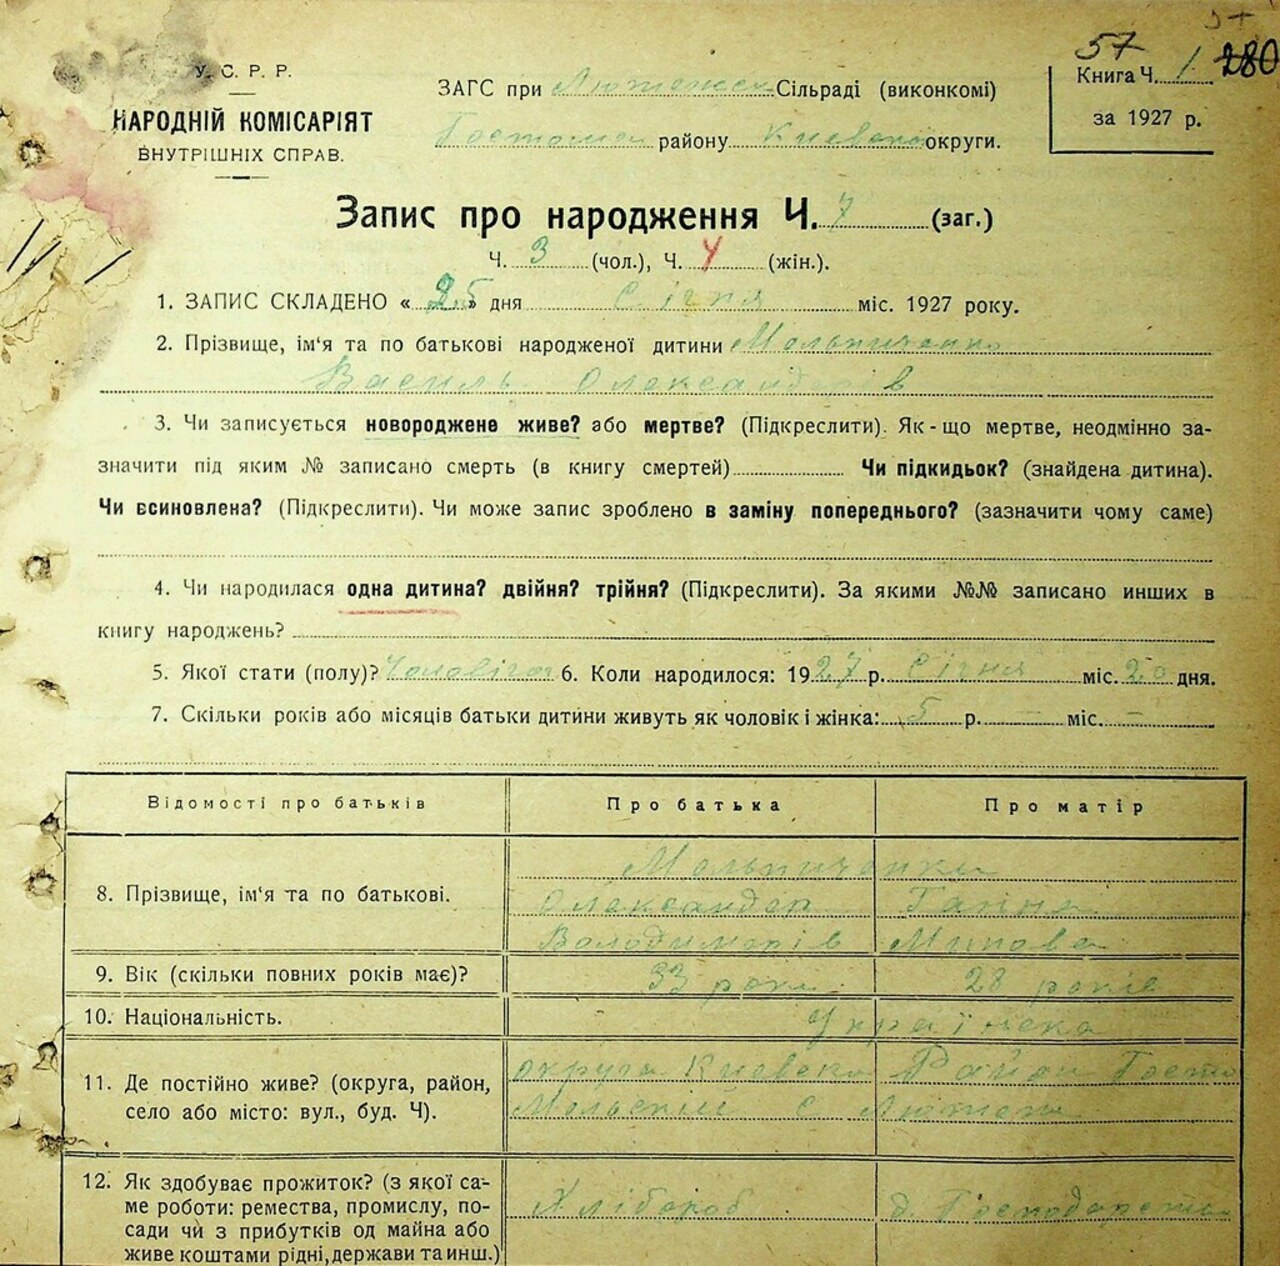 57
У. С. Р. Р.
НАРОДНІЙ КОМІСАРІЯТ
ВНУТРІШНІХ СПРАВ.
ЗАГС при Лютежск Сільраді (виконкомі)
Гостомел району Киевско округи.
Книга Ч. 1 280
за 1927 р.
Запис про народження Ч. 7 (заг.)
Ч. 3 (чол.), Ч. (жін.).
1. ЗАПИС СКЛАДЕНО « 25 » дня Січня міс. 1927 року.
2. Прізвище, ім'я та по батькові народженої дитини
Василь Олександрів
3. Чи записується новороджене живе? або мертве? (Підкреслити). Як-що мертве, неодмінно за-
значити під яким № записано смерть (в книгу смертей) Чи підкидьок? (знайдена дитина).
Чи всиновлена? (Підкреслити). Чи може запис зроблено в заміну попереднього? (зазначити чому саме)
4. Чи народилася одна дитина? двійня? трійня? (Підкреслити). За якими №№ записано инших в
книгу народжень?
5. Якої стати (полу)? Чоловічої 6. Коли народилося: 1927 р. Січня міс. 20 дня.
7. Скільки років або місяців батьки дитини живуть як чоловік і жінка: 5 р. — міс. —
Відомості про батьків Про батька Про матір
8. Прізвище, ім'я та по батькові.
Олександер Ганна
Володимирів
9. Вік (скільки повних років має)? 33 роки 28 років
10. Національність. Українська
11. Де постійно живе? (округа, район, округа Киевска Район Госто
село або місто: вул., буд. Ч). мольскій с Лютеж
12. Як здобуває прожиток? (з якої са-
ме роботи: ремества, промислу, по- Хлібороб д. Господарства
сади чи з прибутків од майна або
живе коштами рідні, держави та инш.)